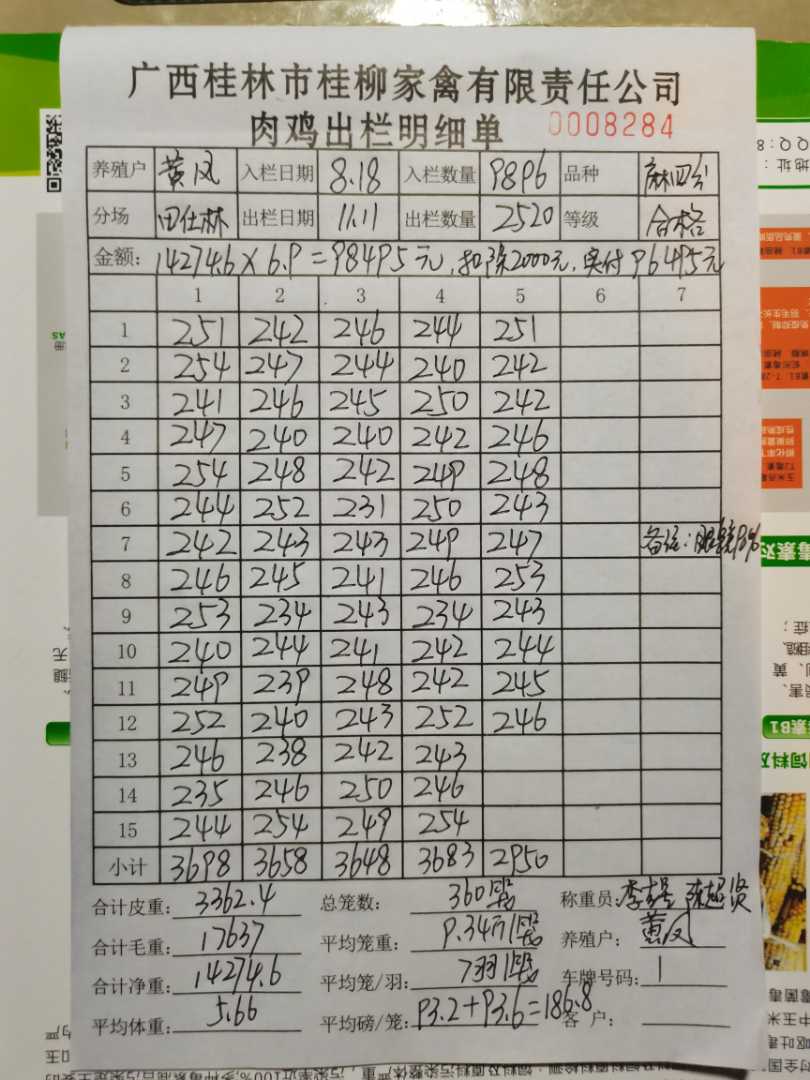 广西桂林市桂柳家禽有限责任公司
肉鸡出栏明细单 0008284
养殖户 黄凤 入栏日期 8.18 入栏数量 9896 品种 麻四分
分场 田仕林 出栏日期 11.11 出栏数量 2520 等级 合格
金额: 14274.6×6.9=98495元,扣除2000元,实付96495元
1 2 3 4 5 6 7
1 251 242 246 244 251
2 254 247 244 240 242
3 241 246 245 250 242
4 247 240 240 242 246
5 254 248 242 249 248
6 244 252 231 250 243
7 242 243 243 249 247 备注:眼镜93%
8 246 245 241 246 253
9 253 234 243 234 243
10 240 244 241 242 244
11 249 239 248 242 245
12 252 240 243 252 246
13 246 238 242 243
14 235 246 250 246
15 244 254 249 254
小计 3698 3658 3648 3683 2950
合计皮重: 3362.4 总笼数: 360 称重员:
合计毛重: 17637 平均笼重: 9.34 养殖户: 黄凤
合计净重: 14274.6 平均笼/羽: 7羽 车牌号码: 1
平均体重: 5.66 平均磅/笼: 93.2+93.6=186.8 客户: